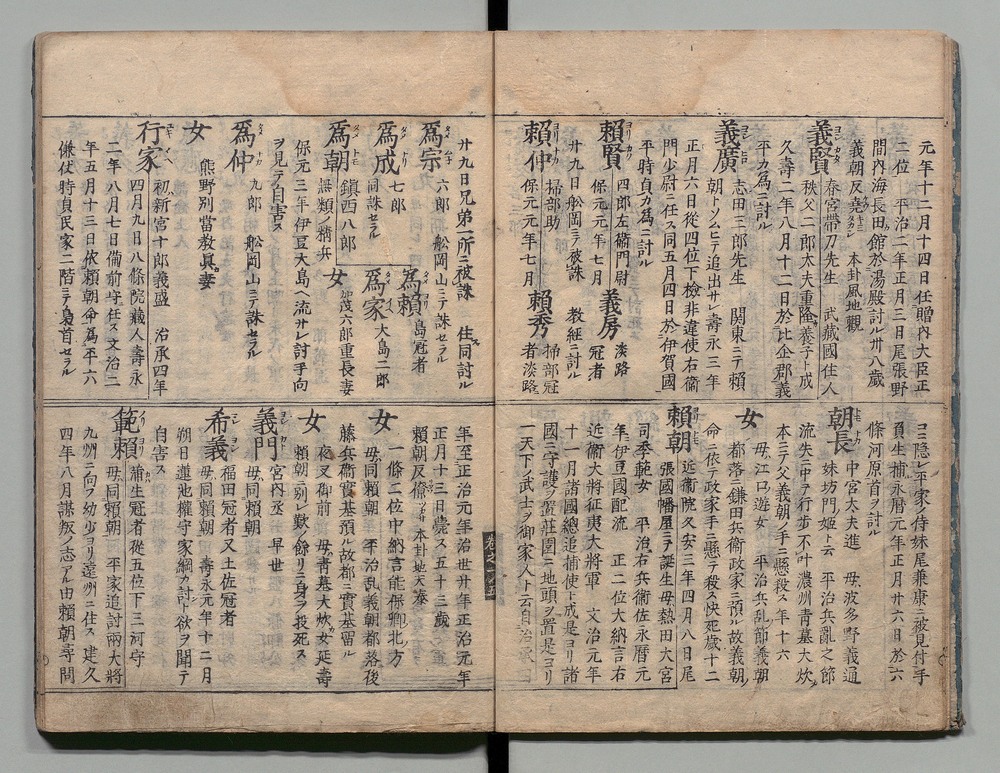 元年十二月十四日任贈內大臣正
二位　平治二年正月三日尾張野
間內海長田館於湯殿討ル卅八歲
義朝反堯タカシ　本卦風地觀
義賢ヨシカタ　春宮帶刀先生　武藏國住人
秩父二郎太夫重隆養子ト成
久壽二年八月十二日於比企郡義
平カ為ニ討ル
義廣ヨシヒロ　志田三郎先生　關東ニテ賴
朝トソムヒテ追出サレ壽永三年
正月六日從四位下檢非違使右衛
門少尉ニ任ス同五月四日於伊賀國
平時貞カ為ニ討ル
賴賢ヨリカタ　四郎左衛門尉
保元元年七月
廿九日舩岡ニテ被誅
義房　淡路
冠者
教經ニ討ル
賴仲ヨリナカ　掃部助
保元元年七月
賴秀　掃部冠
者淡路
廿九日兄弟一所ニ被誅　住同討ル
為宗タメムネ　六郎　舩岡山ニテ誅セラル
為賴タメヨリ　島冠者
為成タメナリ　七郎
同誅セラル
為家タメイヘ　大島二郎
為朝タメトモ　鎭西八郎
無類ノ精兵
女　加茂六郎重長妻
保元三年伊豆大島ヘ流サレ討手向
ヲ見テ自害ス
為仲タメナカ　九郎　舩岡山ニテ誅セラル
女　熊野別當教眞妻
行家ユキイヘ　初新宮十郎義盛　治承四年
四月九日八條院藏人壽永
二年八月七日備前守任ス文治二
年五月十三日依賴朝命為平六
傔仗時貞民家二階ニテ梟首セラル
ヨニ隱レ平家ノ侍妹尾兼康ニ被見付手
負生捕永曆元年正月廿六日於六
條河原首ヲ討ル
朝長トモナカ　中宮大夫進　母波多野義通
妹坊門姬ト云　平治兵亂之節
流矢ニ中テ行步不叶濃州青墓大炊
本ニテ父義朝ノ手ニ懸殺ス年十六
女　母江口遊女　平治兵乱節義朝
都落ニ鎌田兵衛政家ニ預ル故義朝
命ニ依テ政家手ニ懸テ殺ス快死歲十二
賴朝ヨリトモ　近衛院久安三年四月八日尾
張國幡屋ニテ誕生母熱田大宮
司季範女　平治右兵衛佐永曆元
年伊豆國配流　正二位大納言右
近衛大將征夷大將軍　文治元年
十一月諸國總追捕使ト成是ヨリ諸
國ニ守護ヲ置莊園ニ地頭ヲ置是ヨリ
一天下ノ武士ヲ御家人ト云自治承四
年至正治元年治世廿年年正治元年
正月十三日薨ス五十三歲
賴朝反　本卦地天泰
女　一條二位中納言能保卿北方
母同賴朝　平治乱義朝都落後
藤兵衛實基預ル故都ニ實基留ル
女　夜叉御前　母青墓大炊女延壽
賴朝ニ別レ歎ノ餘リニ身ヲ投死ス
義門ヨシカト　宮內丞　早世
母同賴朝
希義マレヨシ　福田冠者又土佐冠者
母同賴朝　壽永元年十二月
朔日蓮池權守家綱カ討ト欲ヲ聞テ
自害ス
範賴ノリヨリ　蒲生冠者從五位下三河守
母同賴朝　平家追討兩大將
九州ニ向フ幼少ヨリ遠州ニ住ス建久
四年八月謀叛ノ志アル由賴朝尋問
卷之五